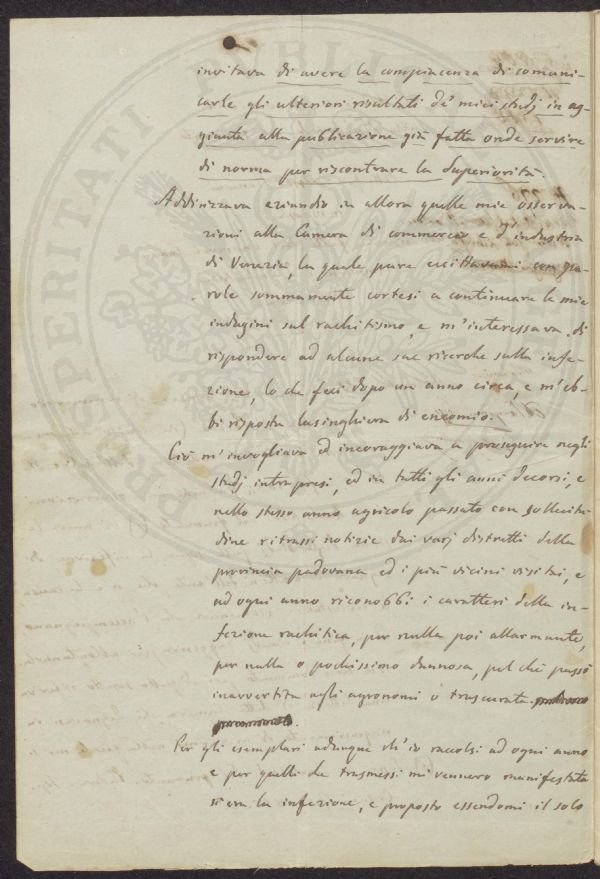 invitava di avere la compiacenza di comuni-
carle gli ulteriori risultati de' miei studj in ag-
giunta alla publicazione già fatta onde servire
di norma per riscontrare la Superiorità.
Addirizzava eziandio in allora quelle mie osserva-
zioni alla Camera di commercio e d'industria
di Venezia, la quale pure eccittavami con pa-
role sommamente cortesi a continuare le mie
indagini sul rachitismo, e m'interessava di
rispondere ad alcune sue ricerche sulla infe-
zione, lo che feci dopo un anno circa, e m'eb-
bi risposta lusinghiera di encomio.
Ciò m'invogliava ed incoraggiava a proseguire negli
studj intrapresi, ed in tutti gli anni decorsi, e
nello stesso anno agricolo passato con sollecitu-
dine ritrassi notizie dai varj distretti della
provincia padovana ed i più vicini visitai, e
ad ogni anno riconobbi i caratteri della in-
fezione rachitica, per nulla poi allarmante,
per nulla o pochissimo dannosa, pel chè passò
inavvertita agli agronomi o trascurata
Per gli esemplari adunque ch'io raccolsi ad ogni anno
e per quelli che trasmessi mi vennero manifestata
si era la infezione, e proposto essendomi il solo
PROSPERITATI PUBLI